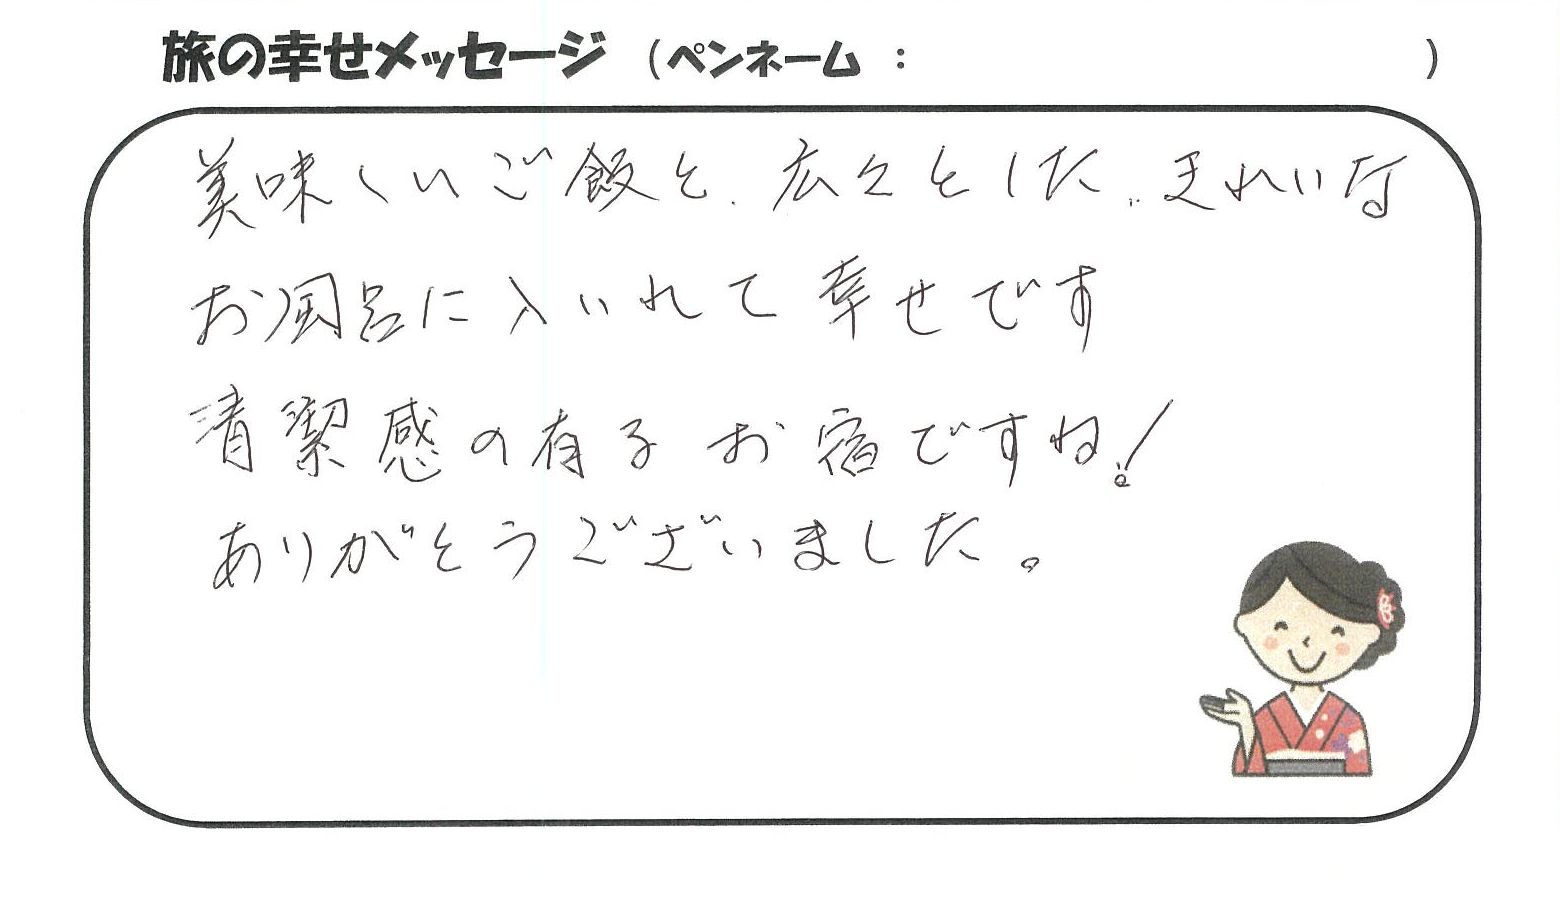 旅の幸せメッセージ （ペンネーム：　　　　　　）
美味しいご飯と、広々とした、きれいな
お風呂に入いれて幸せです
清潔感の有るお宿ですね!
ありがとうございました。